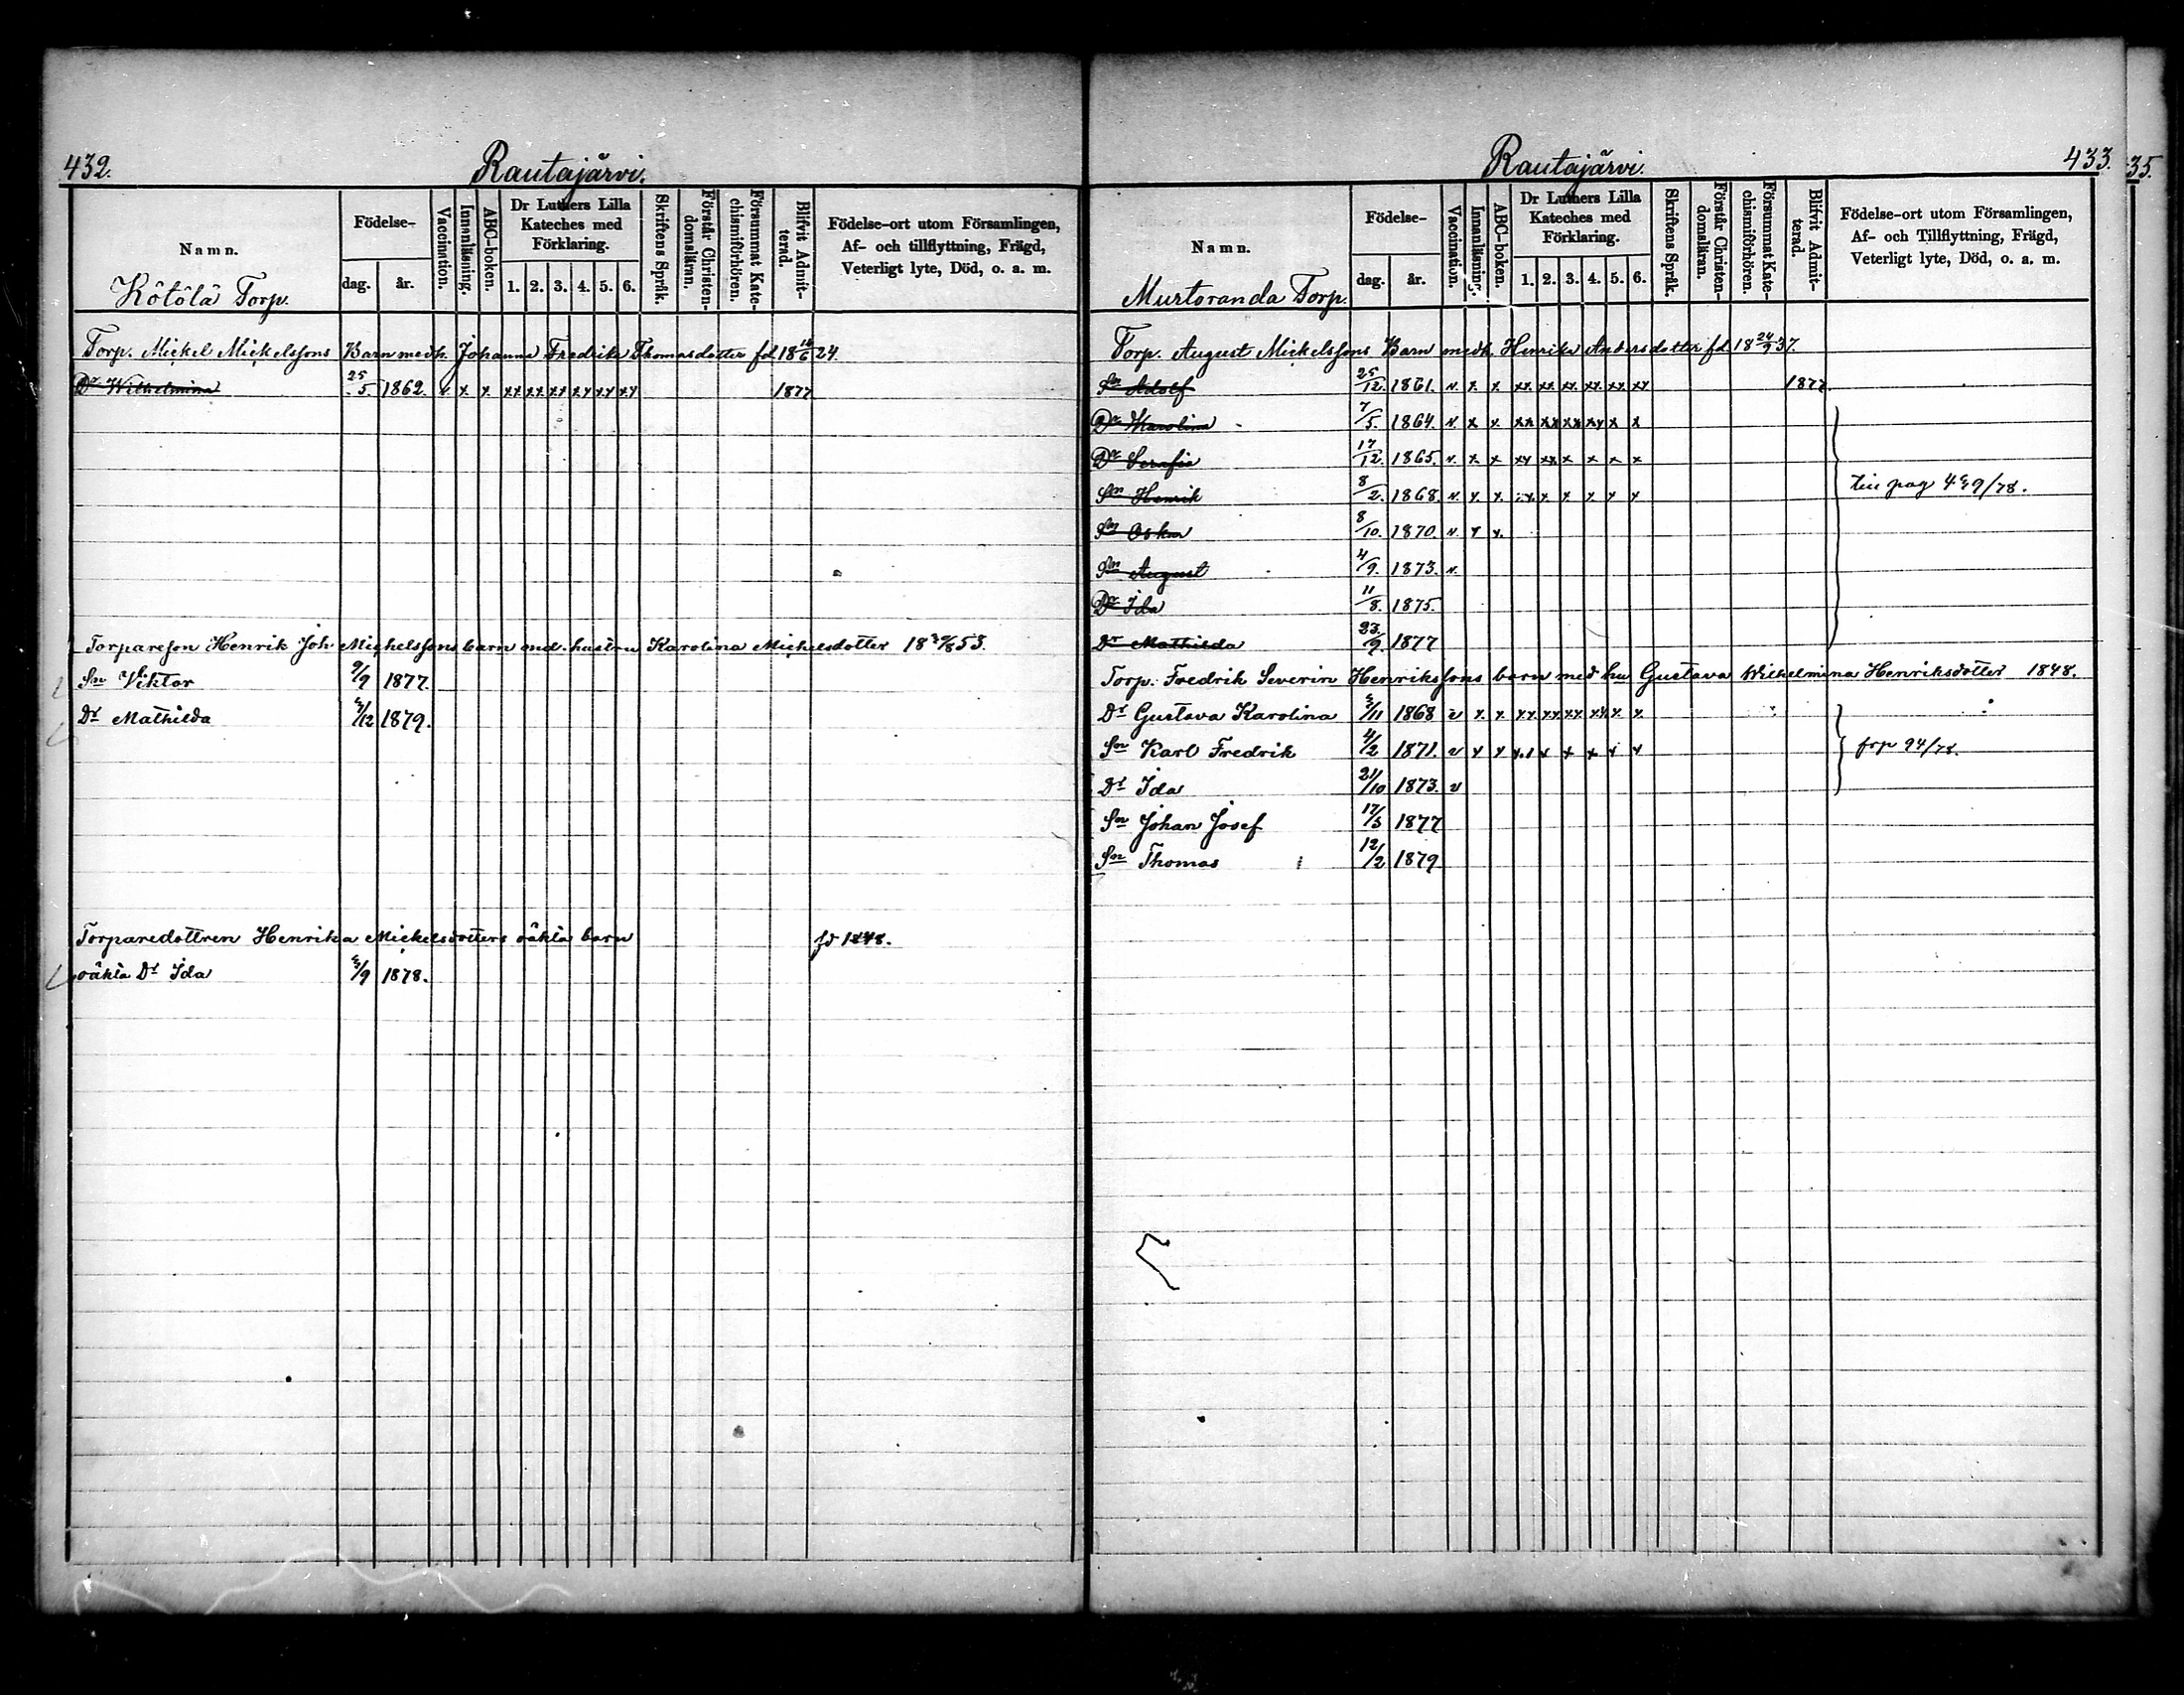 432.
Rautajärvi.
Namn.
Födelse-
dag. år.
Vaccination.
Innanläsning.
ABC-boken.
Dr Luthers Lilla Kateches med Förklaring.
1. 2. 3. 4. 5. 6.
Skriftens Språk.
Förstår Christen-domsläran.
Försummat Kate-chismiförhören.
Blifvit Admit-terad.
Födelse-ort utom Församlingen,
Af- och tillflyttning, Frägd,
Veterligt lyte, Död, o. a. m.
Kötölä Torp.
Torp. Mickel Mickelssons Barn med h. Johanna Fredrika Thomasdotter fd 18 16/6 24.
Dr Wilhelmina 25/5. 1862. v. x x xx xx xx xx xx xx 1877
Torpareson Henrik Joh Michelssons barn med hustru Karolina Michelsdotter 18 /8 53.
Sn Viktor 9/9 1877.
Dr Mathilda /12 1879.
Torparedottren Henrika Mickelsdotters oäkta barn fd 1848.
oäkta Dr Ida /9 1878.
433.
Rautajärvi.
Namn.
Födelse-
dag. år.
Vaccination.
Innanläsning.
ABC-boken.
Dr Luthers Lilla Kateches med Förklaring.
1. 2. 3. 4. 5. 6.
Skriftens Språk.
Förstår Christen-domsläran.
Försummat Kate-chismiförhören.
Blifvit Admit-terad.
Födelse-ort utom Församlingen,
Af- och Tillflyttning, Frägd,
Veterligt lyte, Död, o. a. m.
Murtoranda Torp.
Torp. August Mickelssons Barn med h. Henrika Andersdotter fd 18 24/9 37.
Sn Adolf 25/12. 1861. v. x. x xx xx xx xx xx xx 1877.
Dr Karolina 7/5. 1864. v. x x. xx xx xx xx x x
Dr Serafia 17/12. 1865. v. x. x xx xx x x x x
Sn Henrik 8/2. 1868. v. x. x. x x x x x x
till pag 439/78.
Sn Oskar 8/10. 1870. v. x x.
Sn August 4/9. 1873. v.
Dr Ida 11/8. 1875.
Dr Mathilda 23/9. 1877
Torp. Fredrik Severin Henrikssons barn med hu Gustava Wilhelmina Henriksdotter 1848.
Dr Gustava Karolina /11 1868 v x. x. xx xx xx xx x. x.
Sn Karl Fredrik 4/2 1871. v x x x x x x x x
frp 94/78.
Dr Ida 21/10 1873. v
Sn Johan Josef 17/3 1877
Sn Thomas 12/2 1879
35.